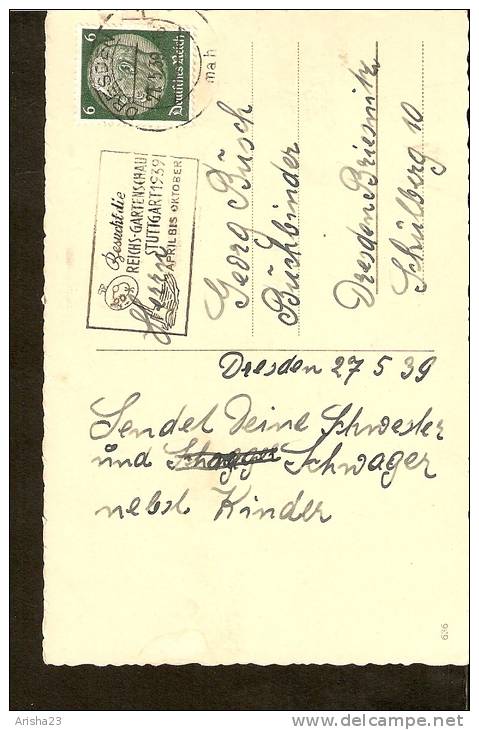 6
Deutsches Reich
6
DRESDEN
mah
Besucht die
REICHS-GARTENSCHAU
STUTTGART 1939!
APRIL BIS OKTOBER
Herrn
Georg Büsch
Büchbinder
Dresden Briesnitz
Schülberg 10
Dresden 27 5 39
Sendet Deine Schwester
und Schwager
nebst Kinder
636
Arisha23
delcampe.net